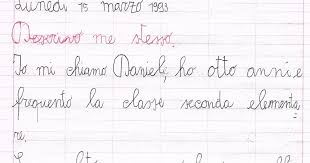 Lunedì 15 marzo 1993
Descrivo me stesso.
Io mi chiamo Daniele, ho otto anni e
frequento la classe seconda elementa
re.